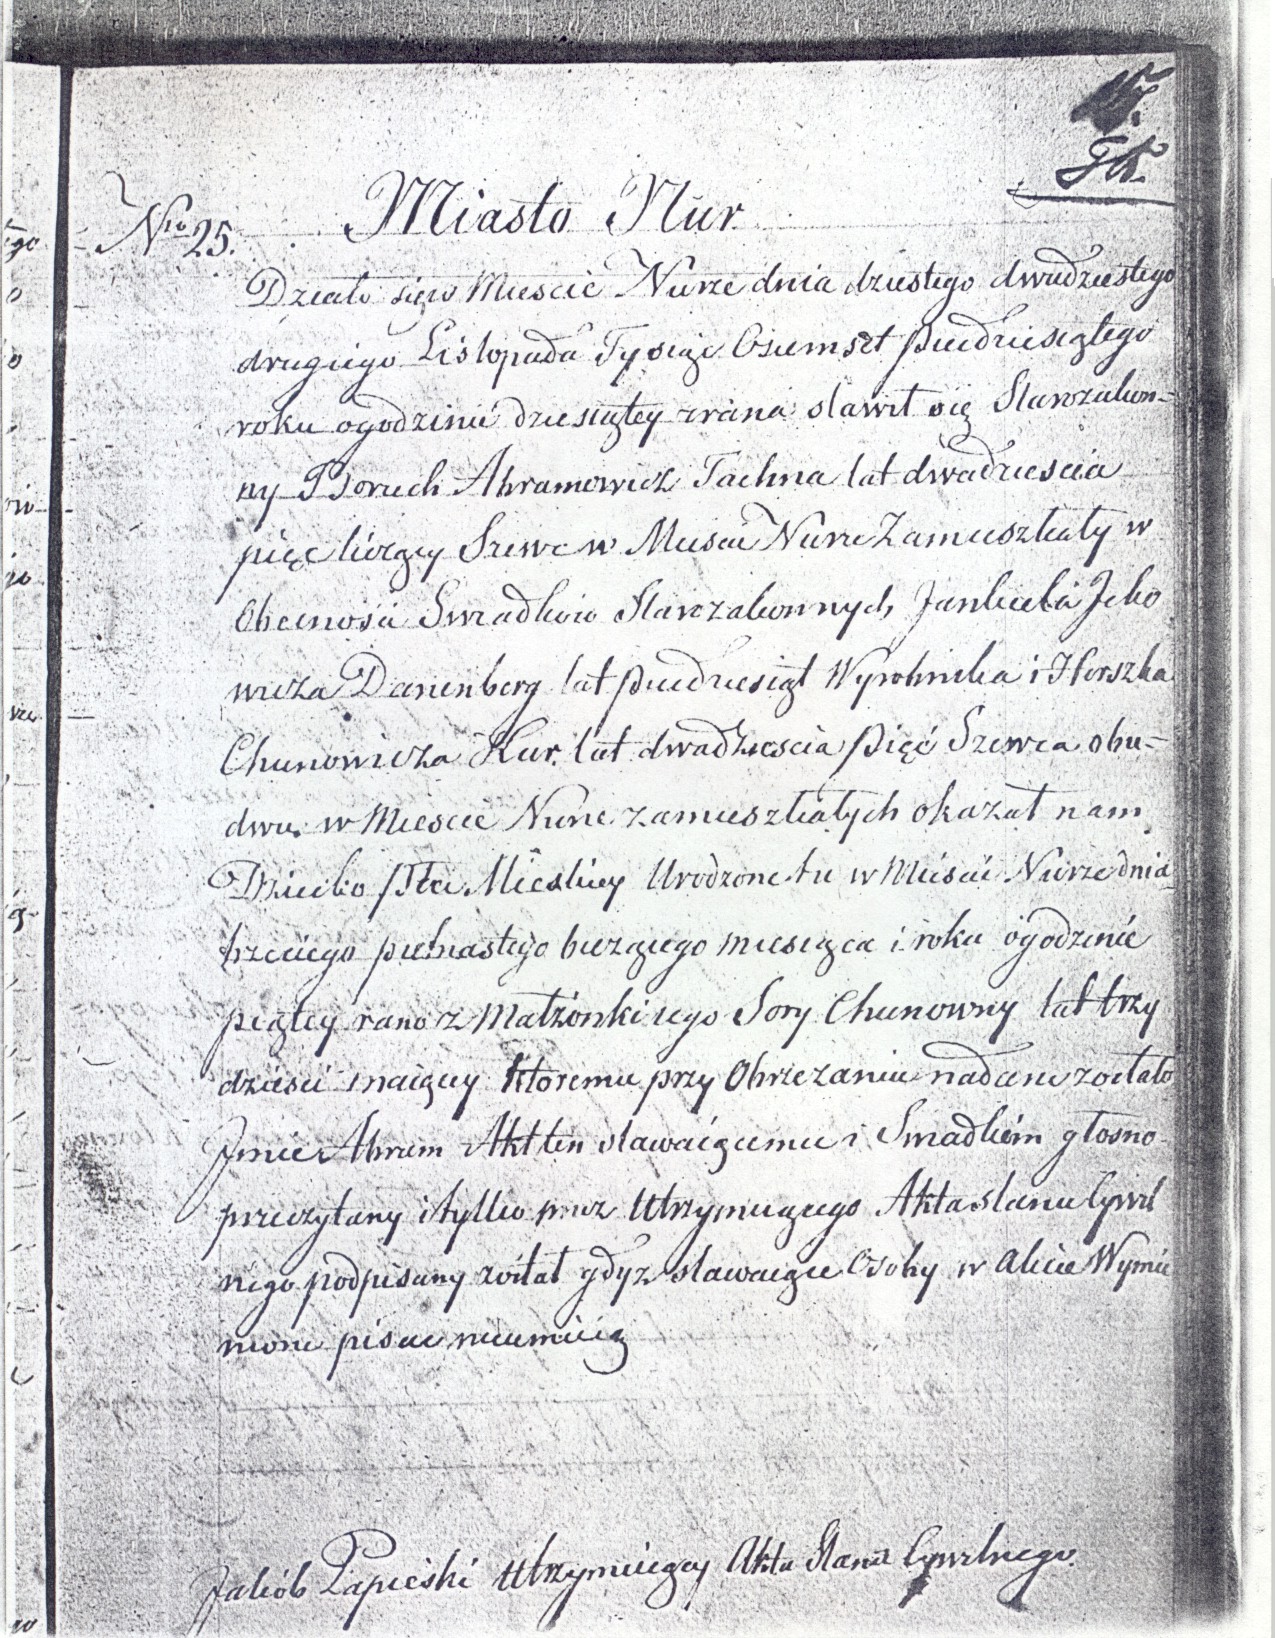 Nro 25.
Miasto Nur.
Działo się w Mieście Nurze dnia dziestego dwudziestego
drugiego Listopada Tysiąc Osiemset piedziesiątego
roku o godzinie dziesiątey zrana stawił się Starozakon-
ny Boruch Abramowicz Tachna lat dwadziescia
pięć liczący Szewc w Miescie Nurze Zamieszkały w
Obecności Swiadków Starozakonnych Jankiela Jcko
wicza Danenberg lat piedziesiąt Wyrobnika i Herszka
Chunowicza Kur. lat dwadziescia pięć Szewca obu-
dwu w Miescie Nurze zamieszkałych okazał nam
Dziecko płci Męskiey Urodzone tu w Mieście Nurze dnia
trzeciego pietnastego bieżącego miesiąca i roku o godzinie
piątey rano z Małżonki iego Sory Chunowny lat trzy
dzieści maiącey któremu przy Obrzezaniu nadane zostało
Jmie Abram Akt ten stawaiącemu i Swiadkom głosno
przeczytany i tylko przez Utrzymuiącego Akta stanu Cywil
nego podpisany został gdyż stawaiące Osoby w akcie Wymie
nione pisac nieumieią
Jakób Papieski Utrzymuiący Akta Stanu Cywilnego.